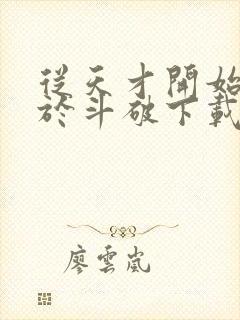 從天才開始
於斗破下載
廖雲嵐